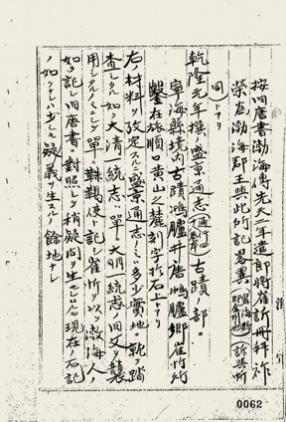 按旧唐書渤海傳先天二年遣郎將崔訢冊拜祚
榮為渤海郡王與此所記畧異
同シトアリ
乾隆元年撰ノ盛京通志古蹟ノ部ニ
寧海縣境内古蹟鴻臚井唐鴻臚卿崔忻所
鑿在旅順口黄山之麓刻字於石上トアリ
右ノ材料ヲ改定スルニ盛京通志ノミハ多少實地ニ就キ踏
査シタル如ク大清一統志ハ單ニ大明一統志ノ旧文ヲ襲
用シタルノミニシテ單ニ靺鞨使ト記シ崔忻ヲ以テ渤海人ノ
如ク記シ旧唐書ト對照シテ稍疑問ヲ生セルモ現在ノ石記
ノ如クナレハ少シモ疑義ヲ生スルノ餘地ナシ
0062